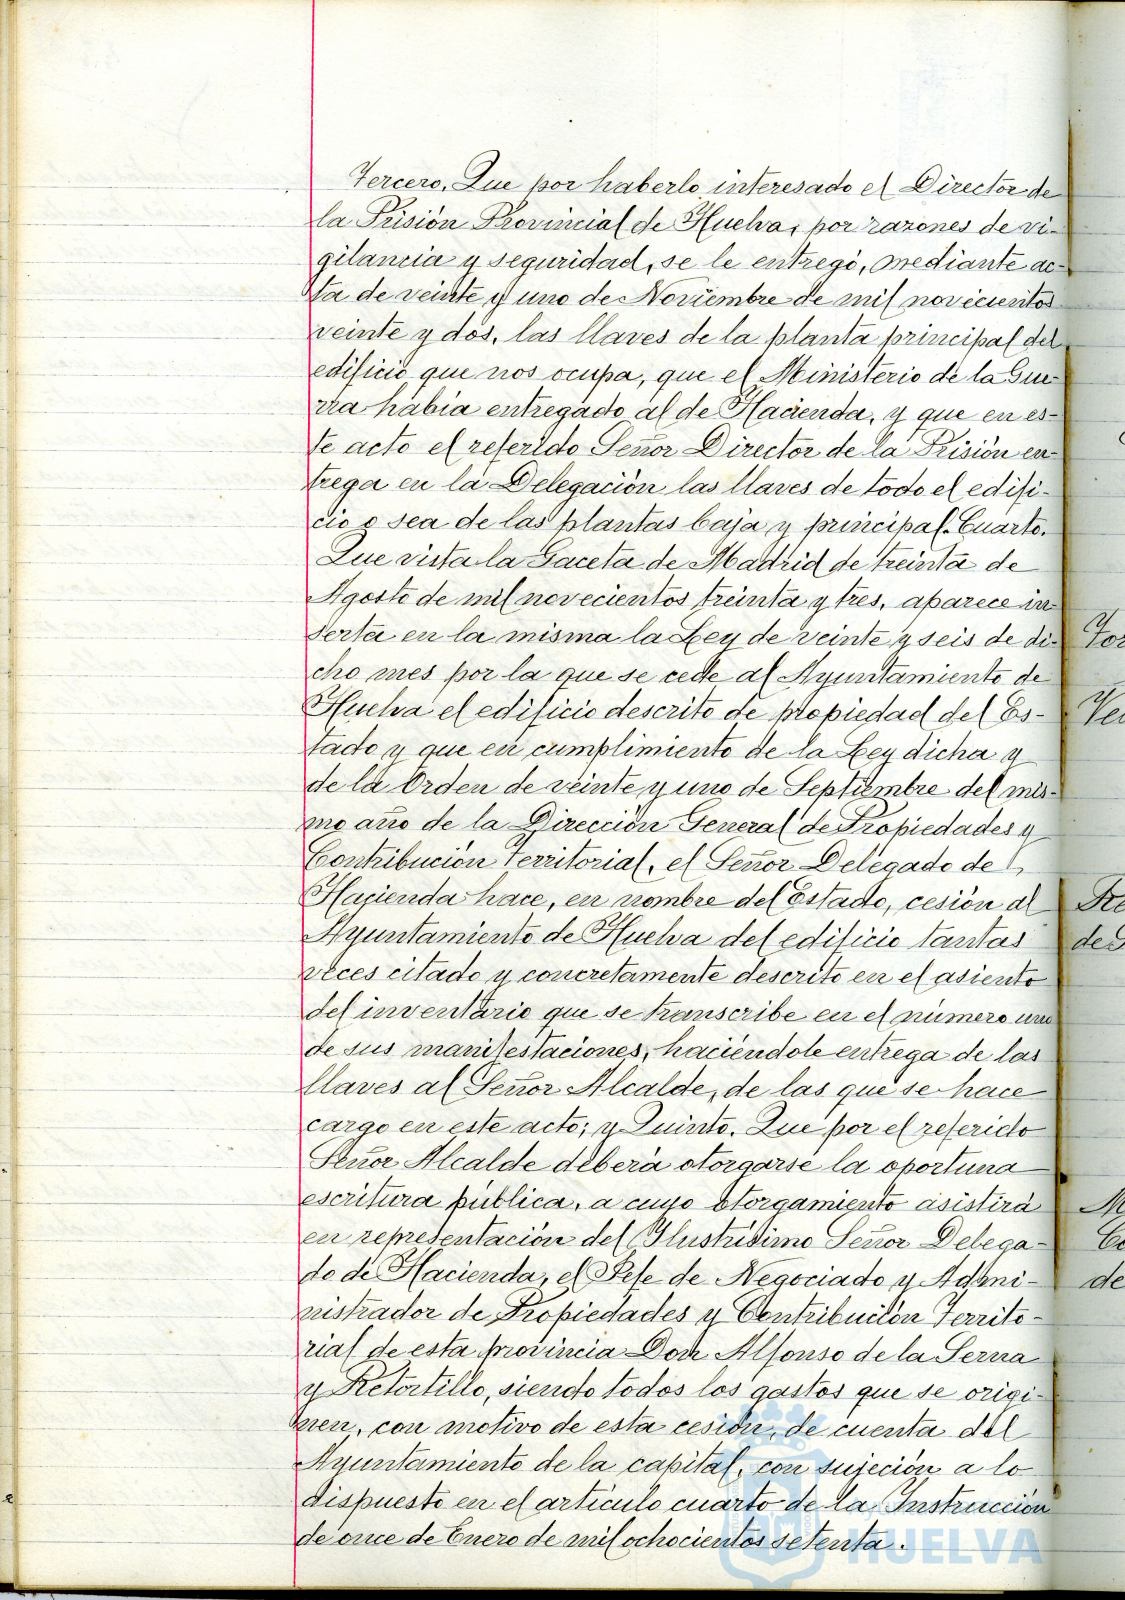 Tercero. Que por haberlo interesado el Director de
la Prisión Provincial de Huelva, por razones de vi-
gilancia y seguridad, se le entregó, mediante ac-
ta de veinte y uno de Noviembre de mil novecientos
veinte y dos, las llaves de la planta principal del
edificio que nos ocupa, que el Ministerio de la Gue-
rra había entregado al de Hacienda, y que en es-
te acto el referido Señor Director de la Prisión en-
trega en la Delegación las llaves de todo el edifi-
cio o sea de las plantas baja y principal. Cuarto.
Que vista la Gaceta de Madrid de treinta de
Agosto de mil novecientos treinta y tres, aparece in-
serta en la misma la Ley de veinte y seis de di-
cho mes por la que se cede al Ayuntamiento de
Huelva el edificio descrito de propiedad del Es-
tado y que en cumplimiento de la Ley dicha y
de la Orden de veinte y uno de Septiembre del mis-
mo año de la Dirección General de Propiedades y
Contribución Territorial, el Señor Delegado de
Hacienda hace, en nombre del Estado, cesión al
Ayuntamiento de Huelva del edificio tantas
veces citado y concretamente descrito en el asiento
del inventario que se transcribe en el número uno
de sus manifestaciones, haciéndole entrega de las
llaves al Señor Alcalde, de las que se hace
cargo en este acto; y Quinto. Que por el referido
Señor Alcalde deberá otorgarse la oportuna
escritura pública, a cuyo otorgamiento asistirá
en representación del Ilustrísimo Señor Delega-
do de Hacienda, el Jefe de Negociado y Admi-
nistrador de Propiedades y Contribución Territo-
rial de esta provincia Don Alfonso de la Serna
y Retortillo, siendo todos los gastos que se origi-
nen, con motivo de esta cesión, de cuenta del
Ayuntamiento de la capital, con sujeción a lo
dispuesto en el artículo cuarto de la Instrucción
de once de Enero de mil ochocientos setenta.
HUELVA